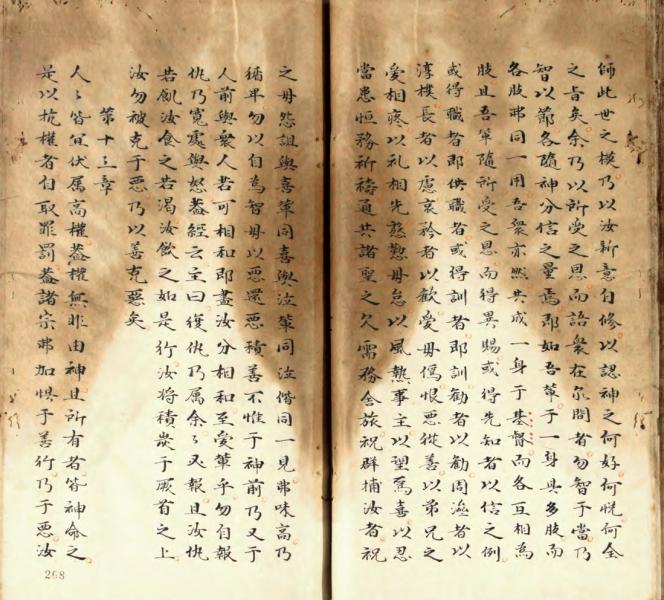 師此世之模乃以汝新意自修以認神之何好何悅何全
之旨矣余乃以所受之恩而語衆在尔間者勿智于當乃
智以節各隨神分信之量焉即如吾輩于一身具多肢而
各肢弗同一用吾衆亦然共成一身于基督而各互相為
肢且吾輩隨所受之恩而得異賜或得先知者以信之例
或得職者即供職者或得訓者即訓勸者以勸周濟者以
淳樸長者以慮哀矜者以歡愛毋偽恨惡從善以弟兄之
愛相疼以礼相先慇懃毋怠以風熱事主以望焉喜以忍
當患恒務祈禱通共諸聖之欠需務舍旅祝群捕汝者祝
之毋怨詛與喜輩同喜與泣輩同泣偕同一見弗味高乃
循卑勿以自為智毋以惡還惡積善不惟于神前乃又于
人前與衆人若可相和即盡汝分相和至愛輩乎勿自報
仇乃寬處與怒葢經云主曰復仇乃属余〻又報且汝仇
若飢汝食之若渴汝飲之如是行汝将積炭于厥首之上
汝勿被克于惡乃以善克惡矣
第十三章
人〻皆宜伏属高權葢權無非由神且所有者皆神命之
是以抗權者自取罪罰葢諸宗弗加惧于善行乃于惡汝
268